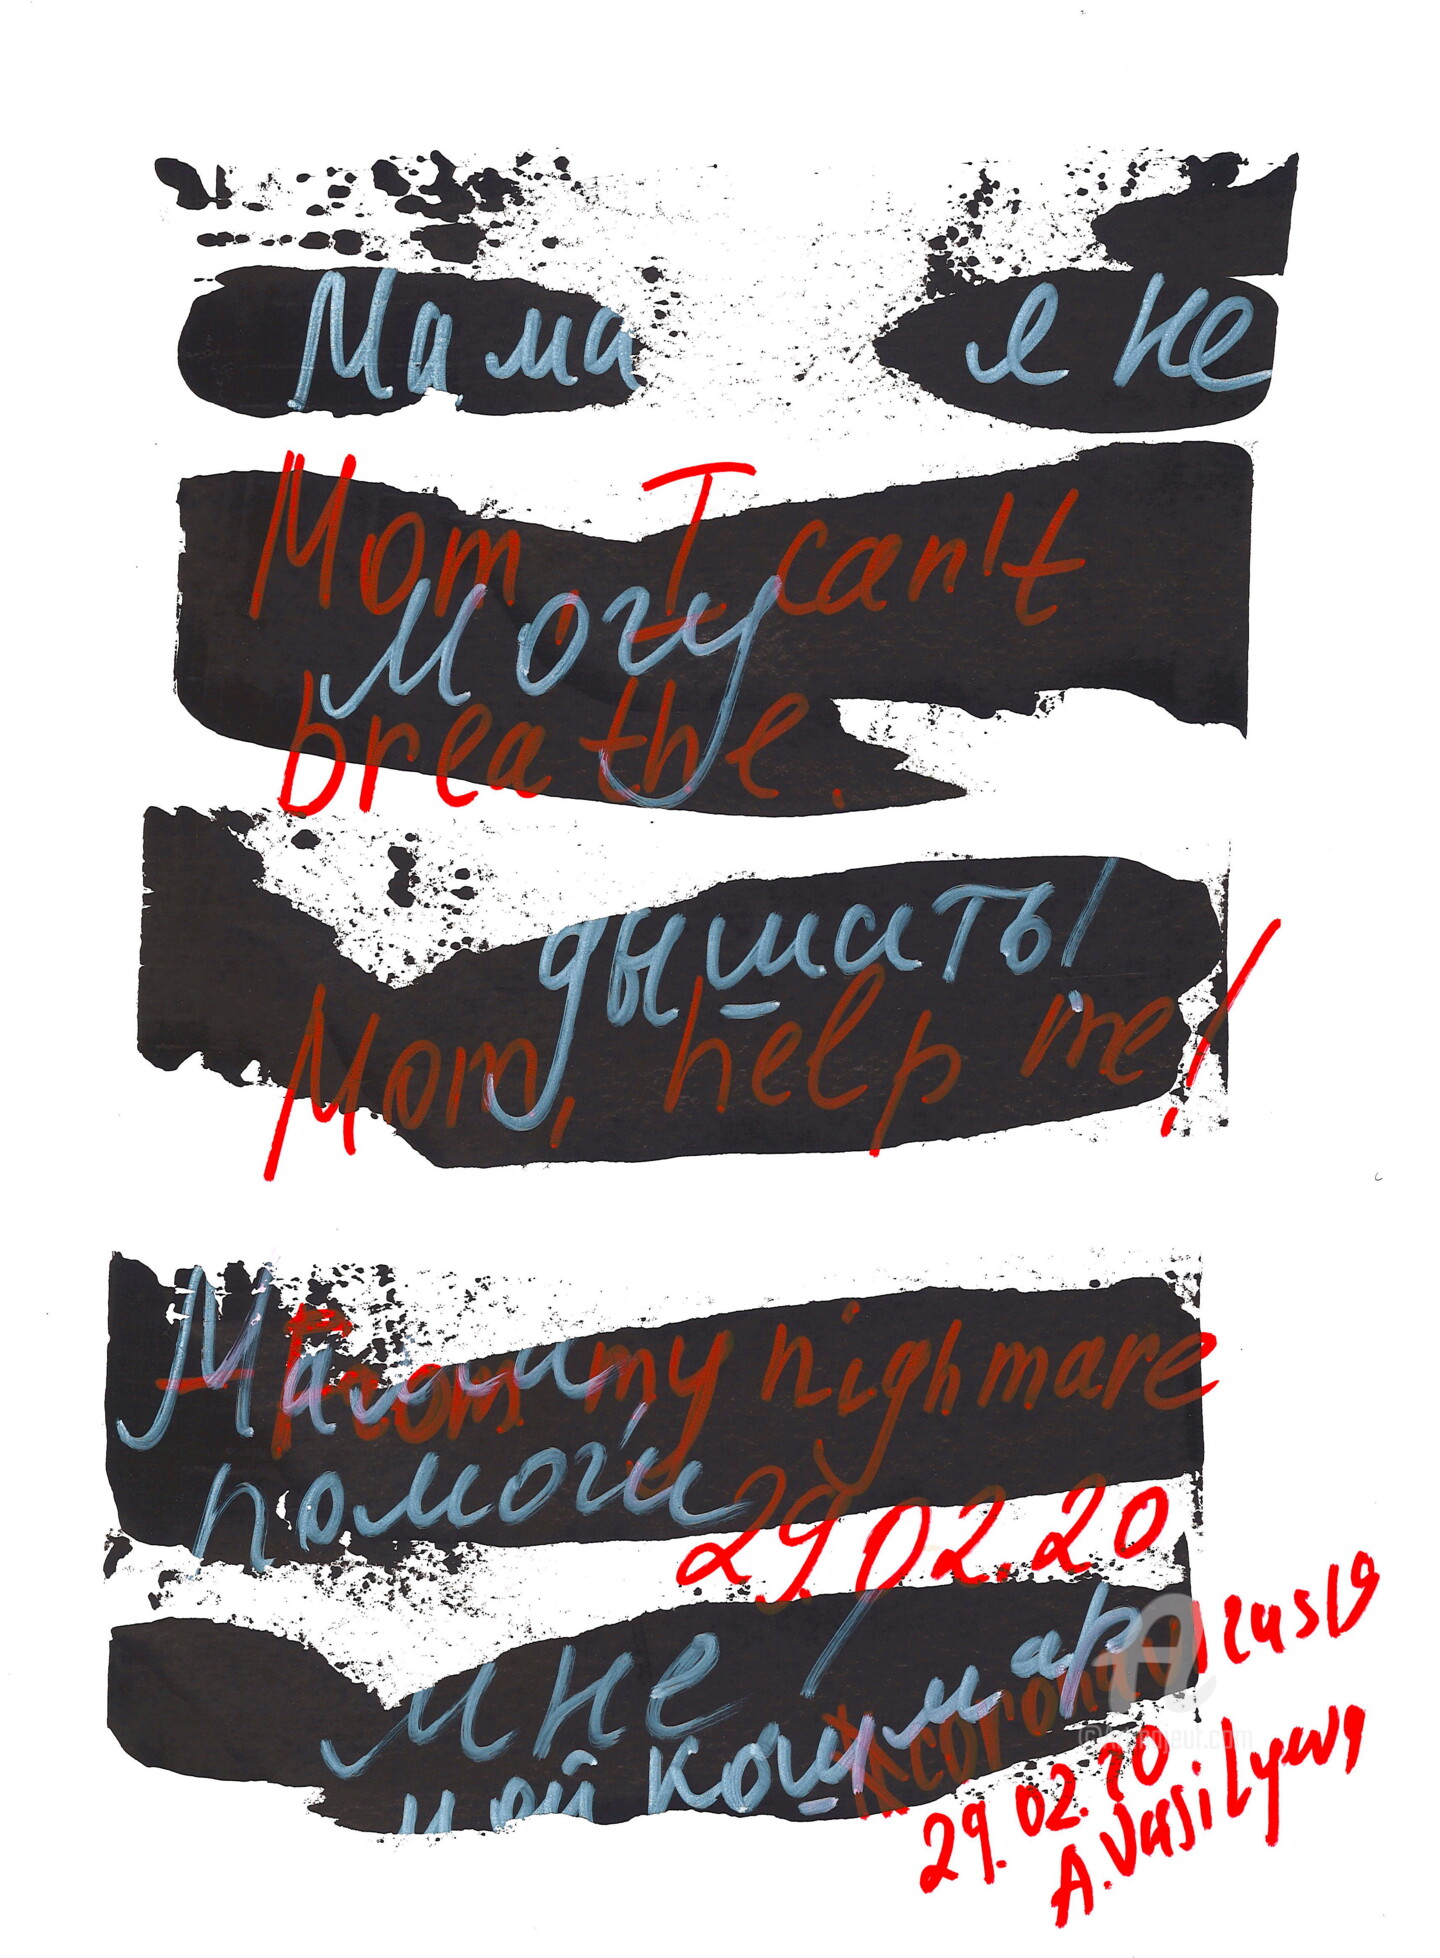 Мама я не
Mom, I can't
могу
breathe.
дышать!
Mom, help me!
Мама
From my nighmare
помоги
29.02.20
мне!
мой кошмар
29.02.20
A. Vasilyeva